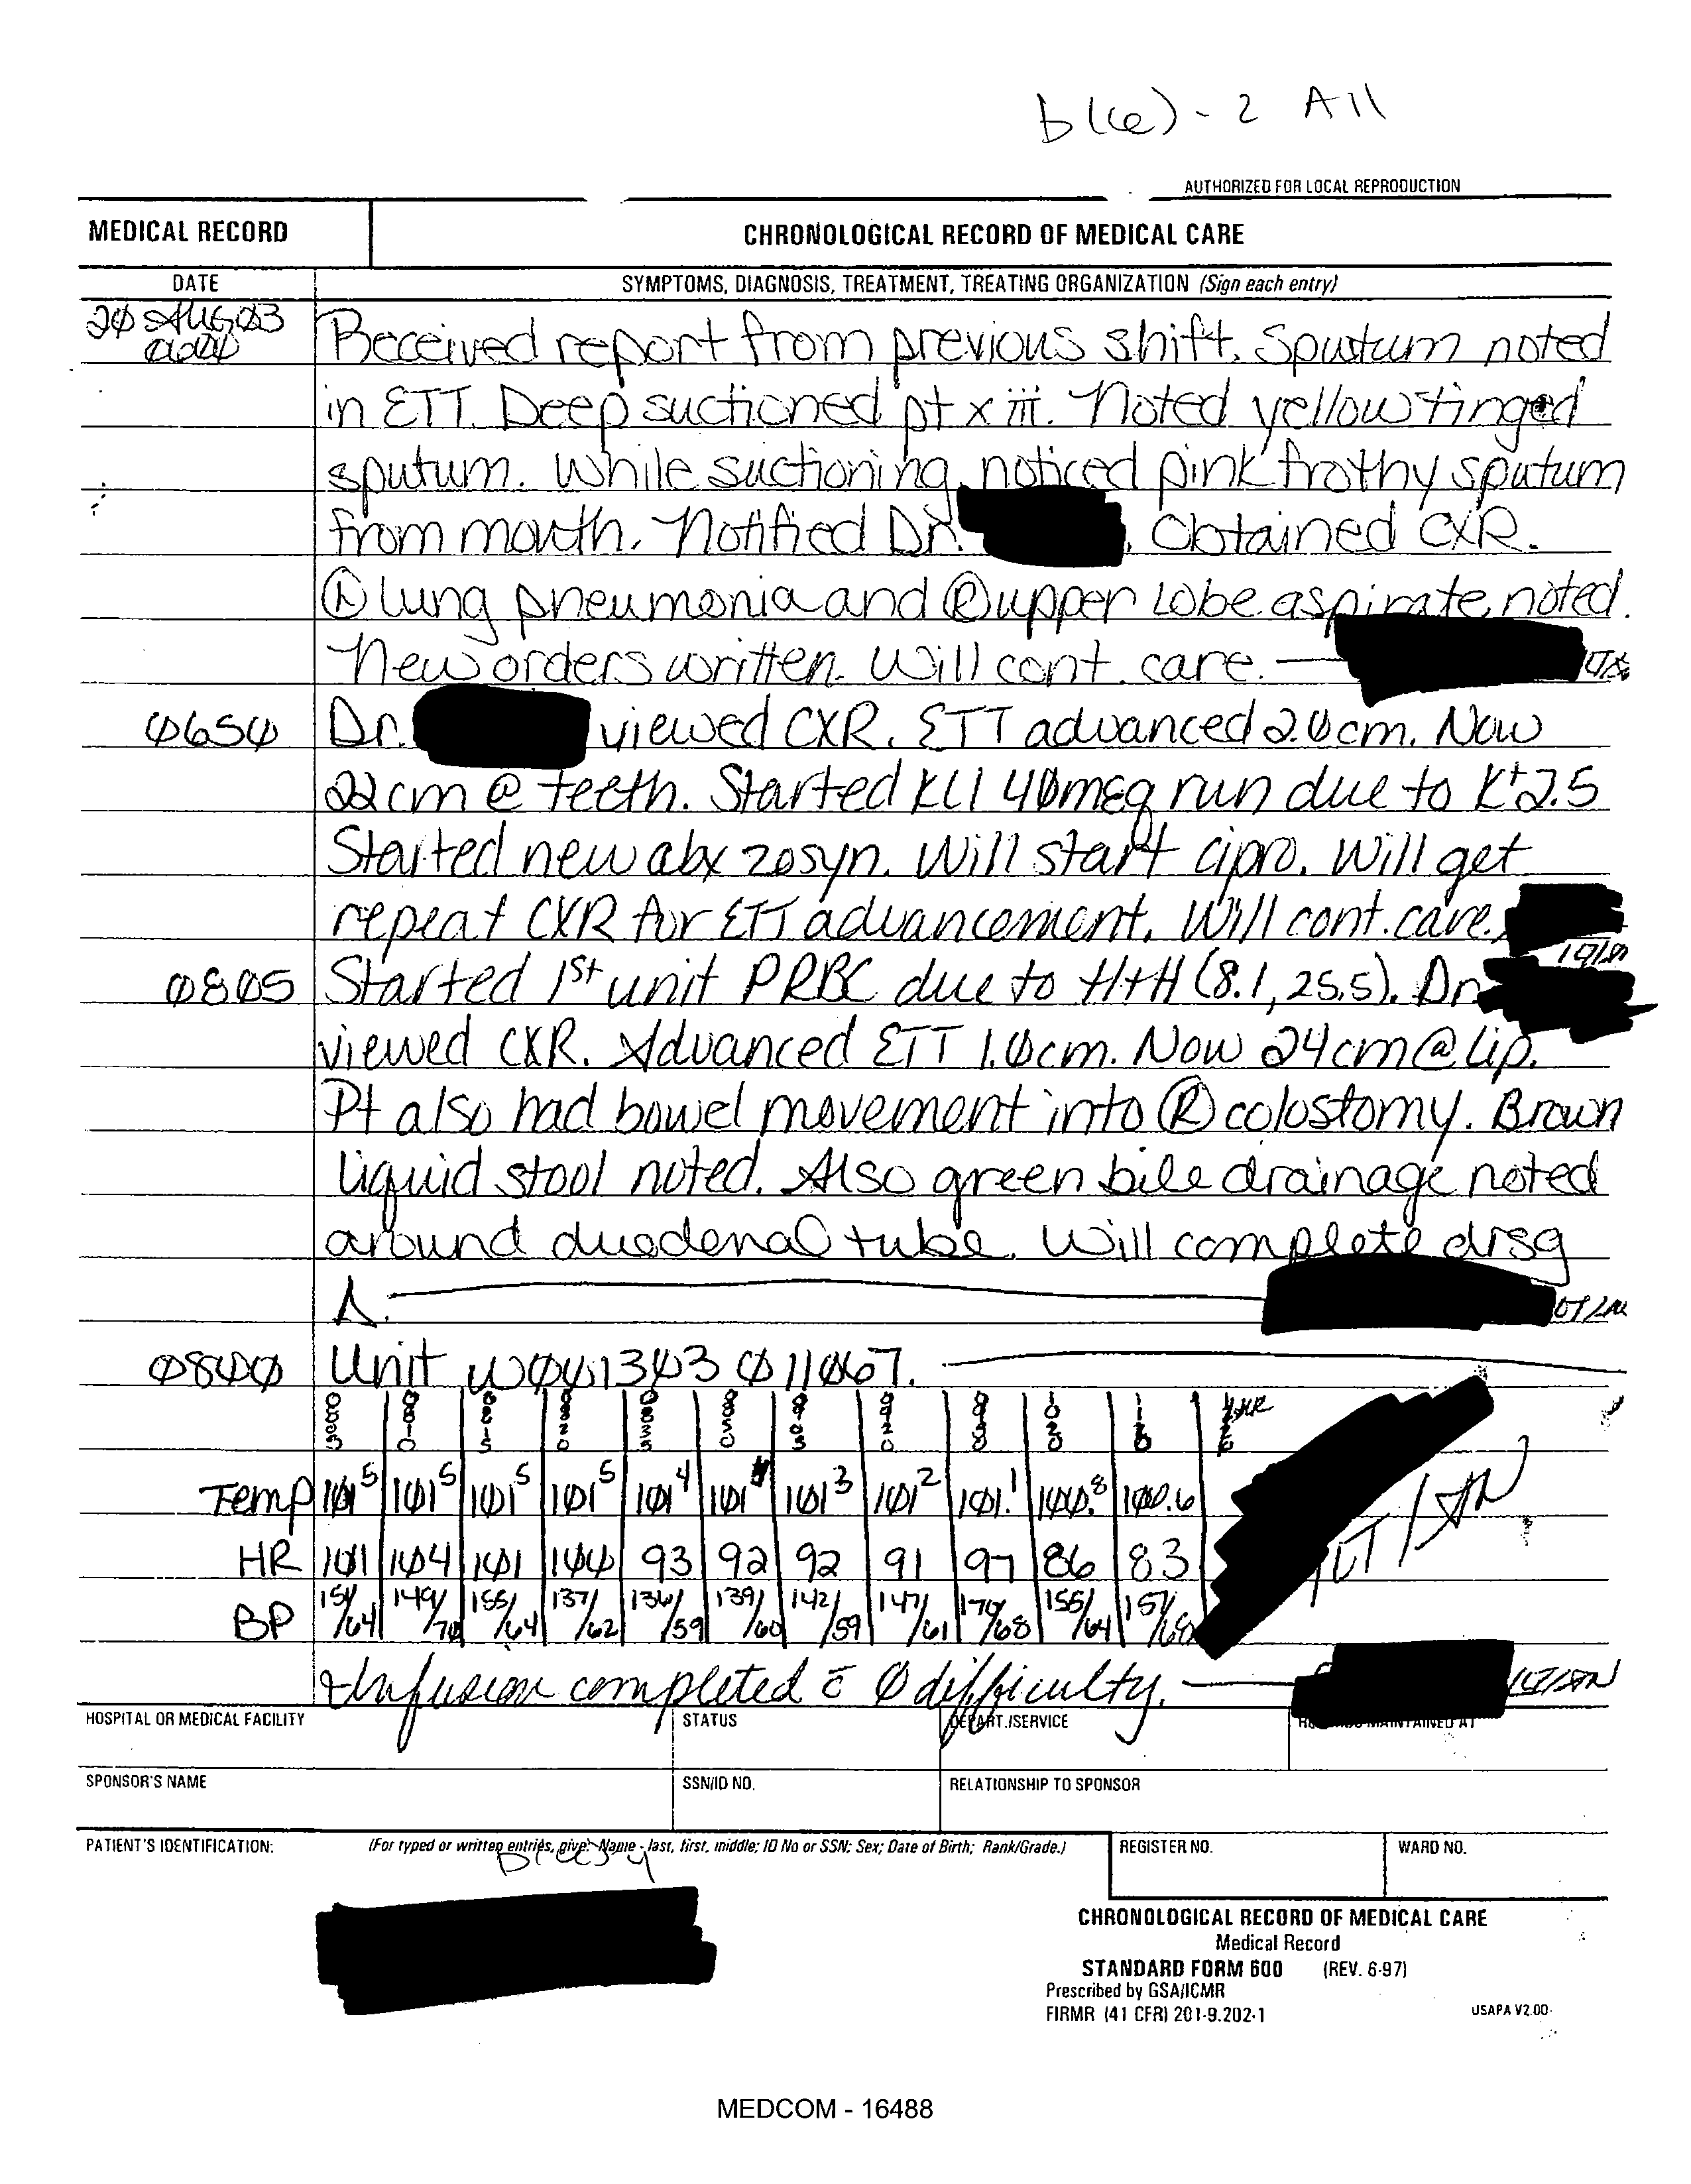 b(6)-2 All
AUTHORIZED FOR LOCAL REPRODUCTION
MEDICAL RECORD
CHRONOLOGICAL RECORD OF MEDICAL CARE
DATE
SYMPTOMS, DIAGNOSIS, TREATMENT, TREATING ORGANIZATION (Sign each entry)
20 Aug 03 Received report from previous shift. Sputum noted
in ETT. Deep suctioned pt x iii. Noted yellow tinged
sputum. While suctioning, noticed pink frothy sputum
from mouth. Notified Dr. Obtained CXR.
lung pneumonia and Ⓡ upper lobe aspirate noted.
New orders written. Will cont. care.
0650 Dr. viewed CXR. ETT advanced 2.0cm. Now
22cm @ teeth. Started KCl 40mEq run due to K+ 2.5
Started new abx zosyn. Will start cipro. Will get
repeat CXR for ETT advancement. Will cont. care.
0805 Started 1st unit PRBC due to H+H (8.1, 25.5). Dr
viewed CXR. Advanced ETT 1.0cm. Now 24cm @ lip.
Pt also had bowel movement into Ⓡ colostomy. Brown
liquid stool noted. Also green bile drainage noted
around duodenal tube. Will complete drsg
Δ.
0800 Unit W041303 011067.
0805 0810 0815 0820 0835 0850 0905 0920 0930 1020 1120
Temp 101⁵ 101⁵ 101⁵ 101⁵ 101⁴ 101 101³ 101² 101.¹ 100.⁸ 100.6
HR 101 104 101 100 93 92 92 91 97 86 83
BP 154/64 149/70 155/64 137/62 136/59 139/60 142/59 147/61 170/68 155/64 157/68
Infusion completed c̄ Ø difficulty.
HOSPITAL OR MEDICAL FACILITY
STATUS
DEPART./SERVICE
RECORDS MAINTAINED AT
SPONSOR'S NAME
SSN/ID NO.
RELATIONSHIP TO SPONSOR
PATIENT'S IDENTIFICATION:
(For typed or written entries, give: Name - last, first, middle; ID No or SSN; Sex; Date of Birth; Rank/Grade.)
REGISTER NO.
WARD NO.
CHRONOLOGICAL RECORD OF MEDICAL CARE
Medical Record
STANDARD FORM 600 (REV. 6-97)
Prescribed by GSA/ICMR
FIRMR (41 CFR) 201-9.202-1
USAPA V2.00
MEDCOM - 16488